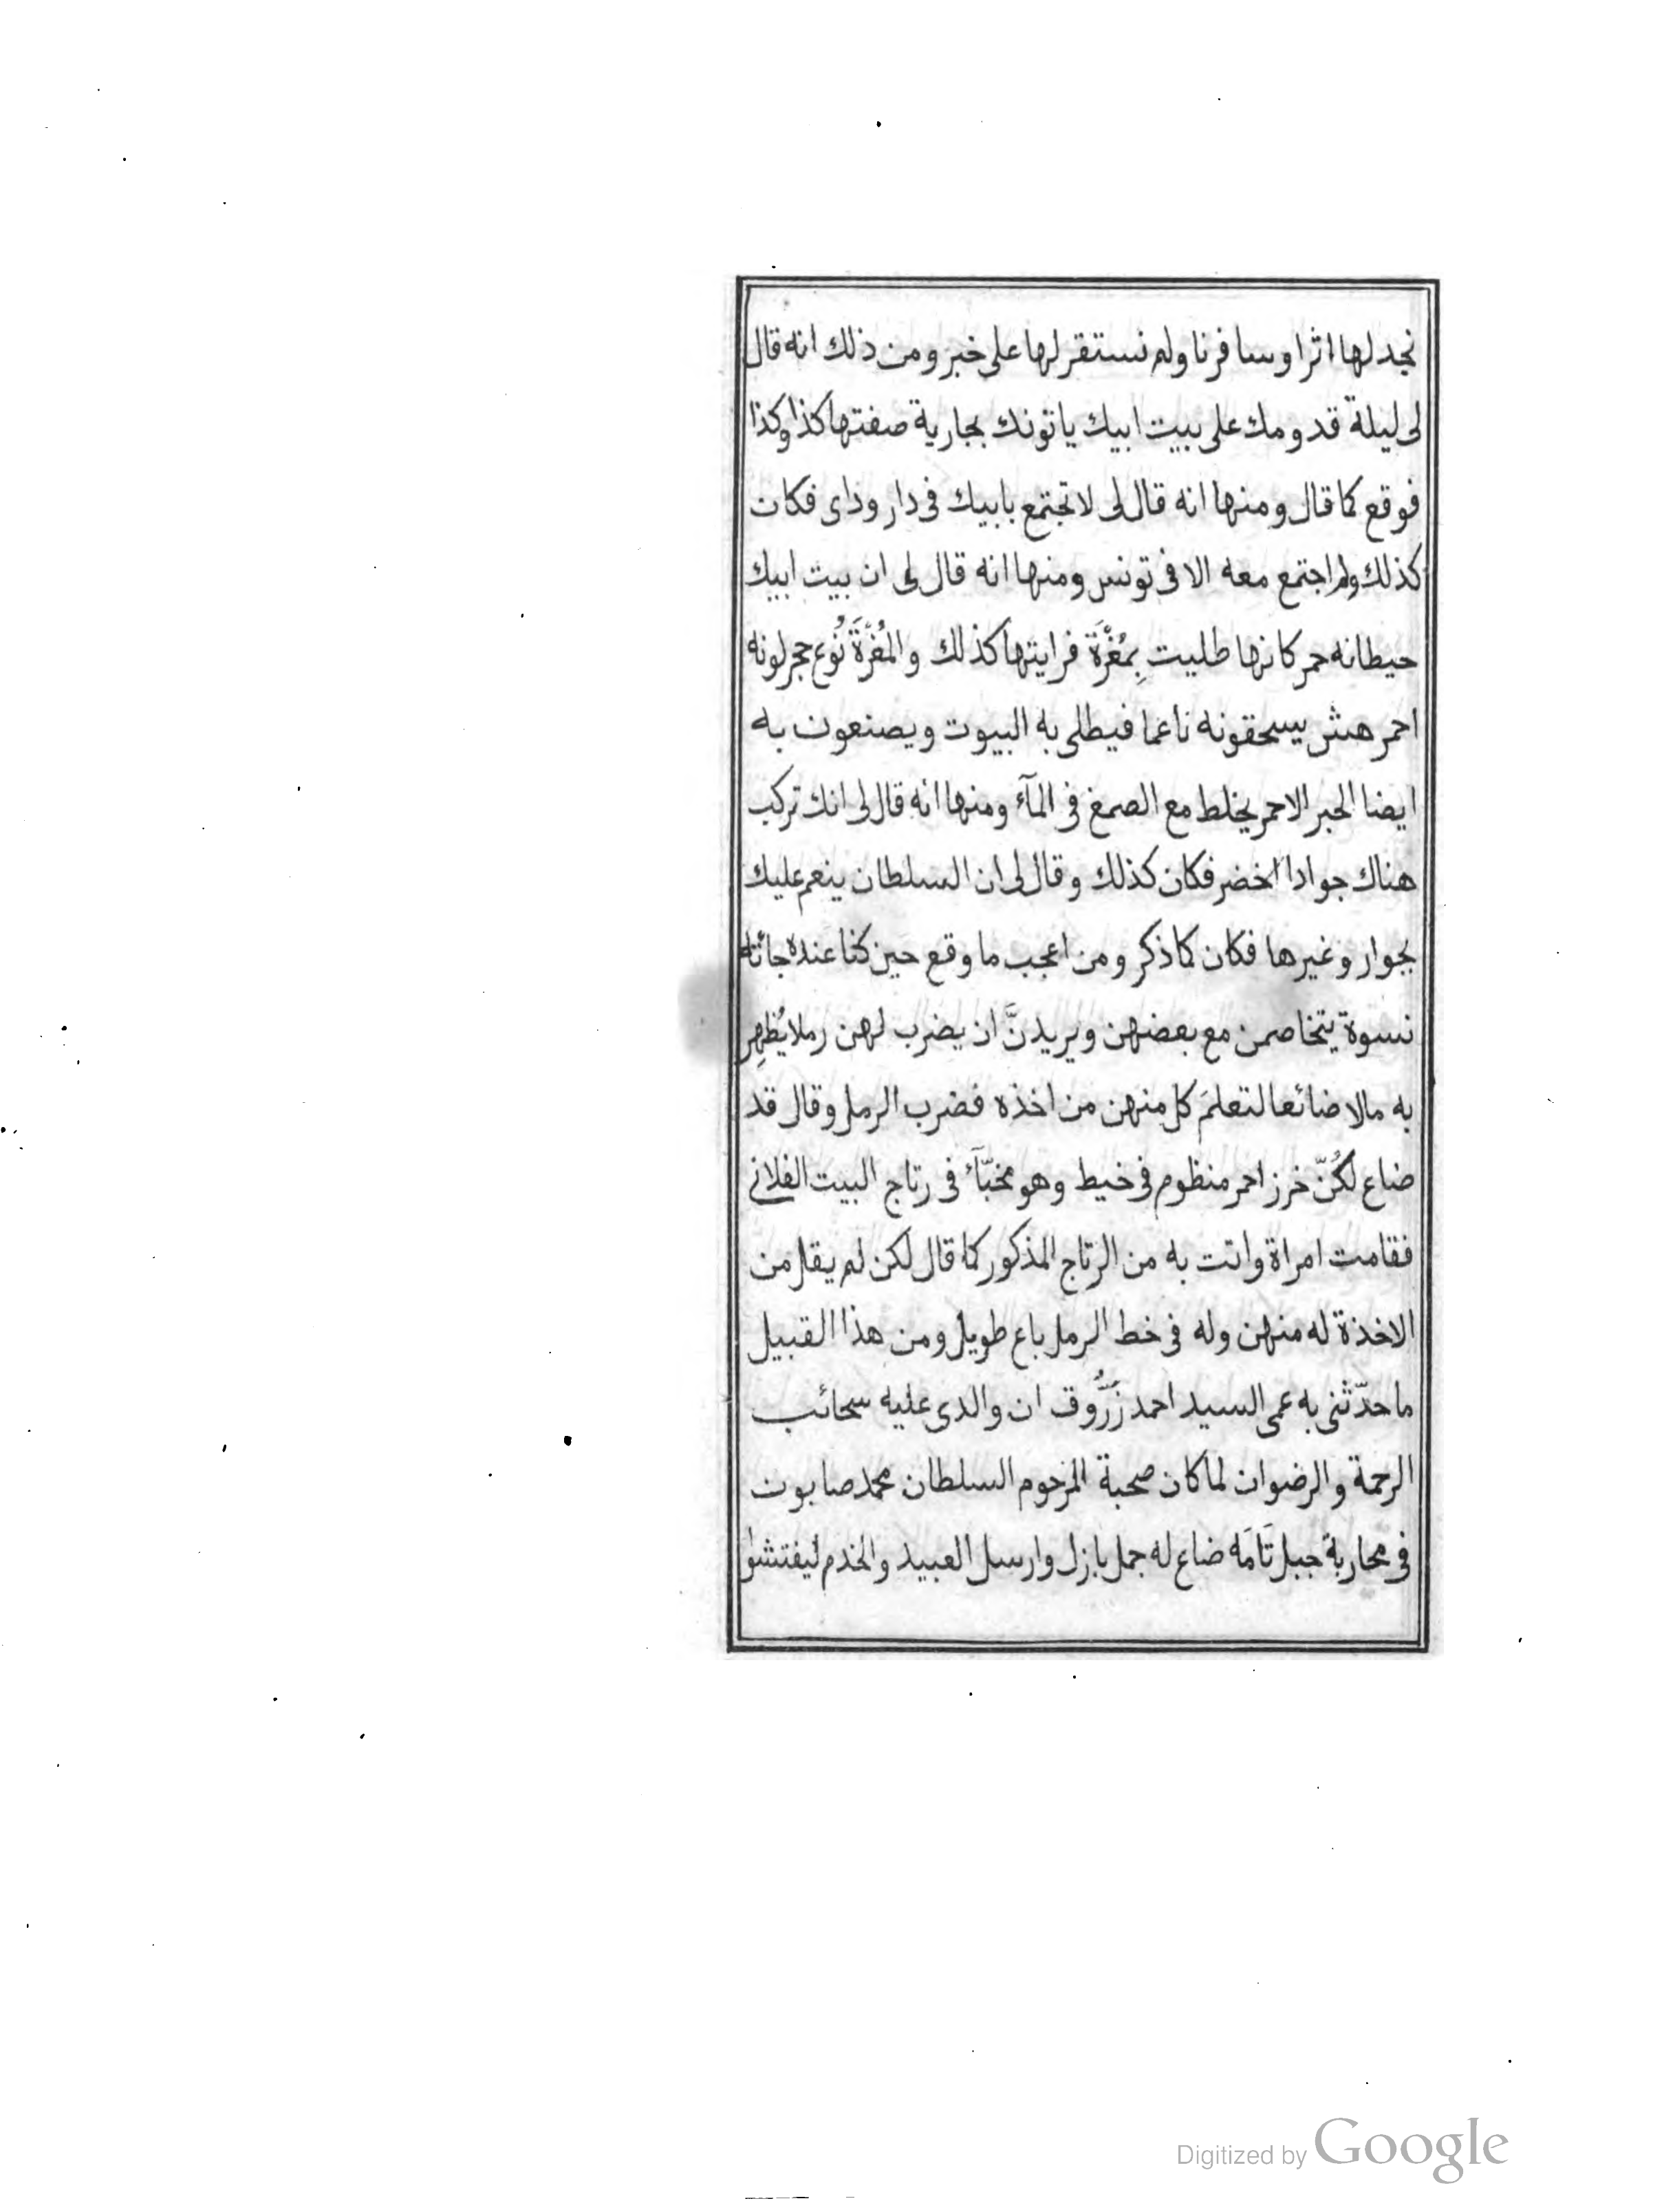 نجد لها اثرا وسافرنا ولم نستقر لها على خبر ومن ذلك انه قال
لى ليلة قدومك على بيت ابيك ياتونك بجارية صفتها كذا وكذا
فوقع كما قال ومنها انه قال لى لا تجتمع بابيك فى دار وداى فكان
كذلك ولم اجتمع معه الا فى تونس ومنها انه قال لى ان بيت ابيك
حيطانه حمر كانها طليت بِمُغْرَّةَ فرايتها كذلك والمُغْرَّةَ نُوع حجر لونه
احمر هش يسحقونه ناعما فيطلى به البيوت ويصنعون به
ايضا الحبر الاحمر يخلط مع الصمغ فى المآء ومنها انه قال لى انك تركب
هناك جوادا اخضر فكان كذلك وقال لى ان السلطان ينعم عليك
بجوار وغيرها فكان كما ذكر ومن اعجب ما وقع حين كنا عنده جائته
نسوة يتخاصمن مع بعضهن ويريدنَّ ان يضرب لهن رملا يُظهِر
به مالا ضائعا لتعلمَ كل منهن من اخذه فضرب الرمل وقال قد
ضاع لكُنّ خرز احمر منظوم فى خيط وهو مخبّآء فى رتاج البيت الفلانى
فقامت امراة واتت به من الرتاج المذكور كما قال لكن لم يقل من
الاخذة له منهن وله فى خط الرمل باع طويل ومن هذا القبيل
ما حدّثنى به عمى السيد احمد زَرُّوق ان والدى عليه سحائب
الرحمة والرضوان لما كان صحبة المرحوم السلطان محمد صابون
فى محاربة جبل تَامَه ضاع له جمل بازل وارسل العبيد والخدم ليفتشوا
Digitized by Google